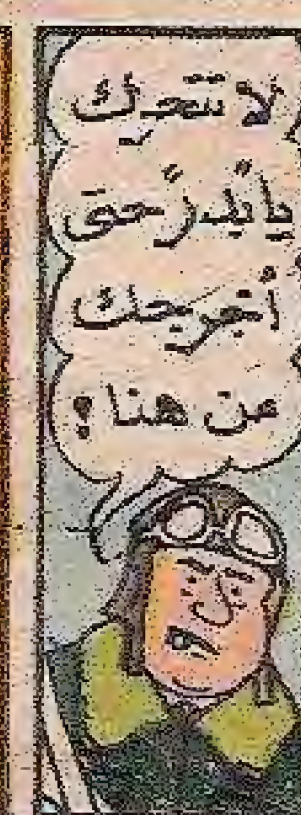 لا تتحرك
حتى
أخرجك
من هنا!